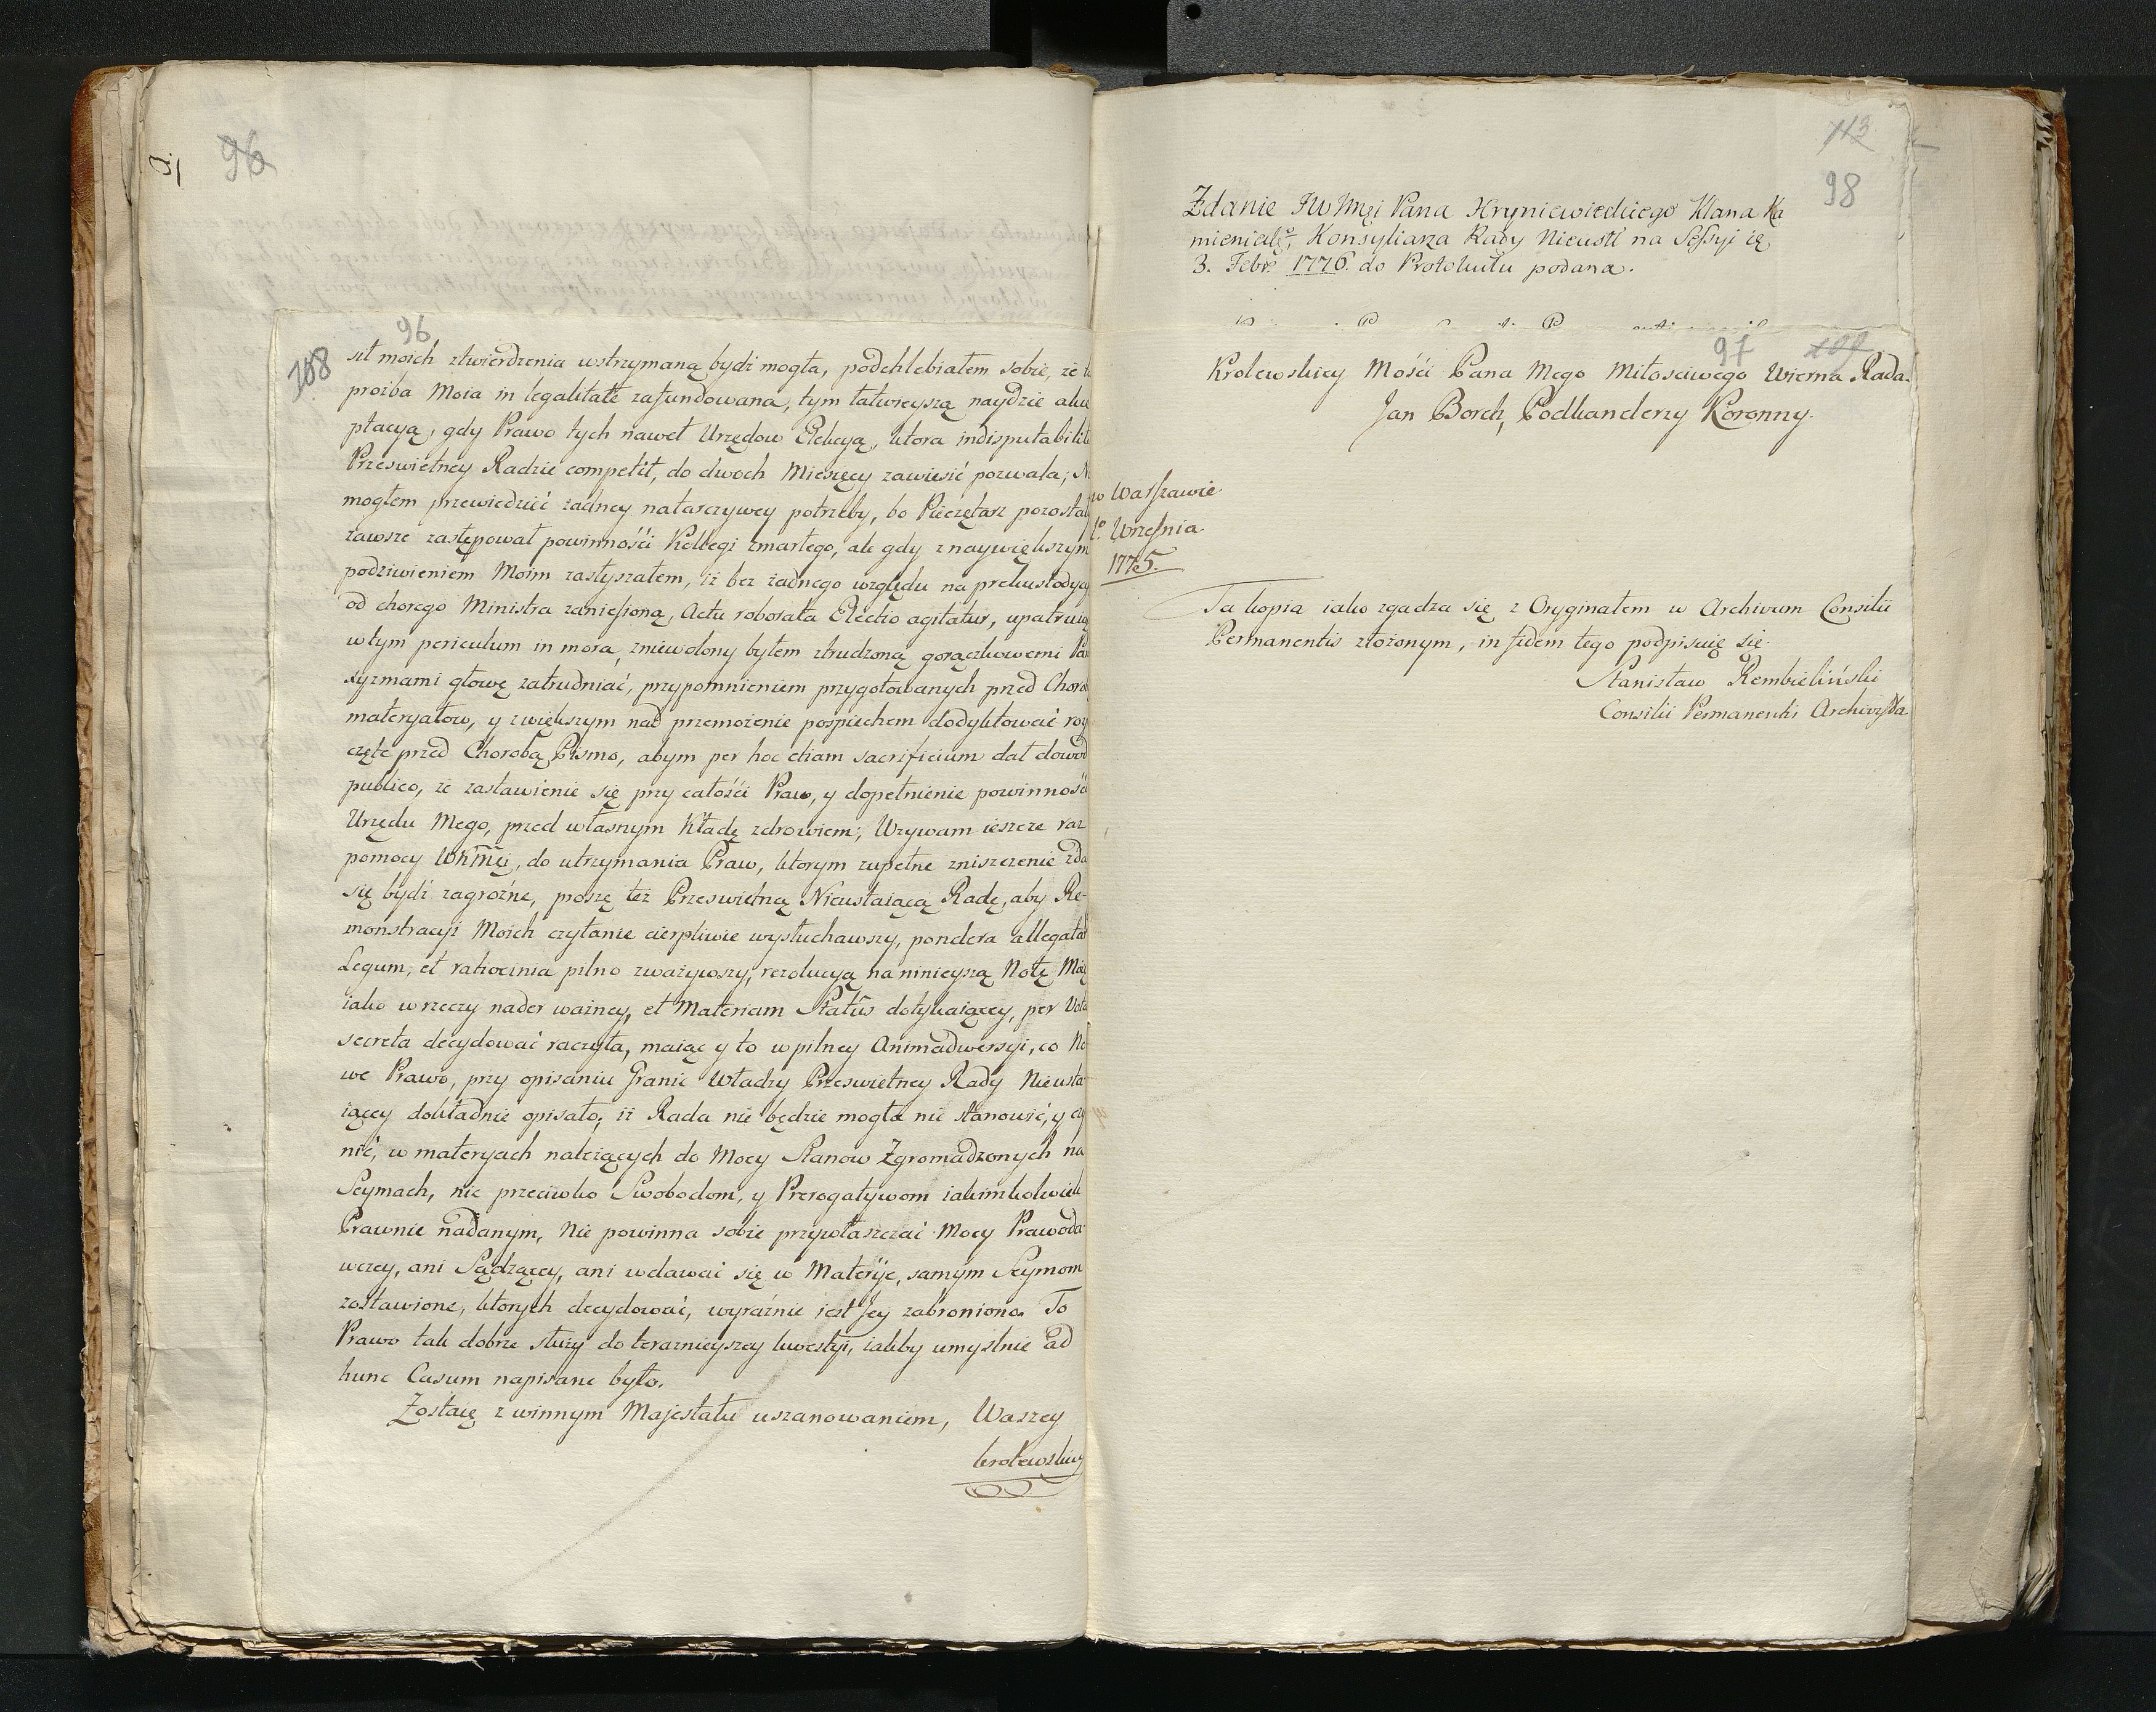 96
96
108
sił moich ztwierdzenia wstrzymaną bydź mogła, podchlebiałem sobie, że ta
proźba Moia in legalitate zafundowana, tym łatwieyszą naydzie akce
ptacyą, gdy Prawo tych nawet Urzędow Elekcyą, ktora indisputabilite
Prześwietney Radzie competit, do dwoch Miesięcy zawiesić pozwala; Ni
mogłem przewiedzieć żadney natarczywey potrzeby, bo Pieczętarz pozostał
zawsze zastępował powinnośći Kollegi zmarłego, ale gdy z naywiększym
podziwieniem Moim zasłyszałem, iż bez żadnego względu na prekustodycyą
od chorego Ministra zanieśioną, Actu roborata Electio agitatur, upatruiąc
w tym periculum in mora, zniewolony byłem ztrudzoną gorączkowemi Par
xyzmami głowę zatrudniać, przypomnieniem przygotowanych przed Chorobą
materyałow, y zwiększym nad przemożenie pospiechem dodyktować rozp
częte przed Chorobą Pismo, abym per hoc etiam sacrificium dał dowod
publico, że zastawienie się przy całośći Praw, y dopełnienie powinnośći
Urzędu Mego, przed własnym Kładę zdrowiem; Wzywam ieszcze raz
pomocy WKMći, do utrzymania Praw, ktorym zupełne zniszczenie zda
się bydź zagroźne, proszę też Prześwietną Nieustaiącą Radę, aby Re-
monstracyi Moich czytanie cierpliwie wysłuchawszy, pondera allegatar
Legum, et ratiocinia pilno zważywszy, rezolucyą na ninieyszą Notę Moię
iako w rzeczy nader ważney, et Materiam Statûs dotykaiącey, per Vota
secreta decydować raczyła, maiąc y to w pilney Animadwersyi, co No
we Prawo, przy opisaniu Granic Władzy Prześwietney Rady Nieusta
iącey dokładnie opisało, iż Rada nie będzie mogła nic stanowić, y czy
nić, w materyach należących do Mocy Stanow Zgromadzonych na
Seymach, nic przeciwko Swobodom, y Prerogatywom iakimkolwiek
Prawnie nadanym, Nie powinna sobie przywłaszczać Mocy Prawoda-
wczey, ani Sądzącey, ani wdawać się w Materÿe, samym Seymom
zostawione, ktorych decydować, wyraźnie iest Jey zabroniono. To
Prawo tak dobrze służy do teraznieyszey kwestyi, iakby umyślnie ad
hunc Casum napisane było.
Zostaię z winnym Majestatu uszanowaniem, Waszey
krolewskiey
113
98
Zdanie JW Jmći Pana Hryniewieckiego Kłana Ka
mieniec°, Konsyliarza Rady Nieust na Sessyi ię
3. Febr. 1776. do Protokułu podana.
97
109
Krolewskiey Mośći Pana Mego Miłosciwego Wierna Rada.
Jan Borch, Podkanclerzy Koronny.
w Warszawie
1° Września
1775.
Ta kopia iako zgadza się z Oryginałem w Archivum Consilii
Permanentis złożonym, in fidem tego podpisuię się.
Stanisław Rembieliński
Consilii Permanentis Archivista